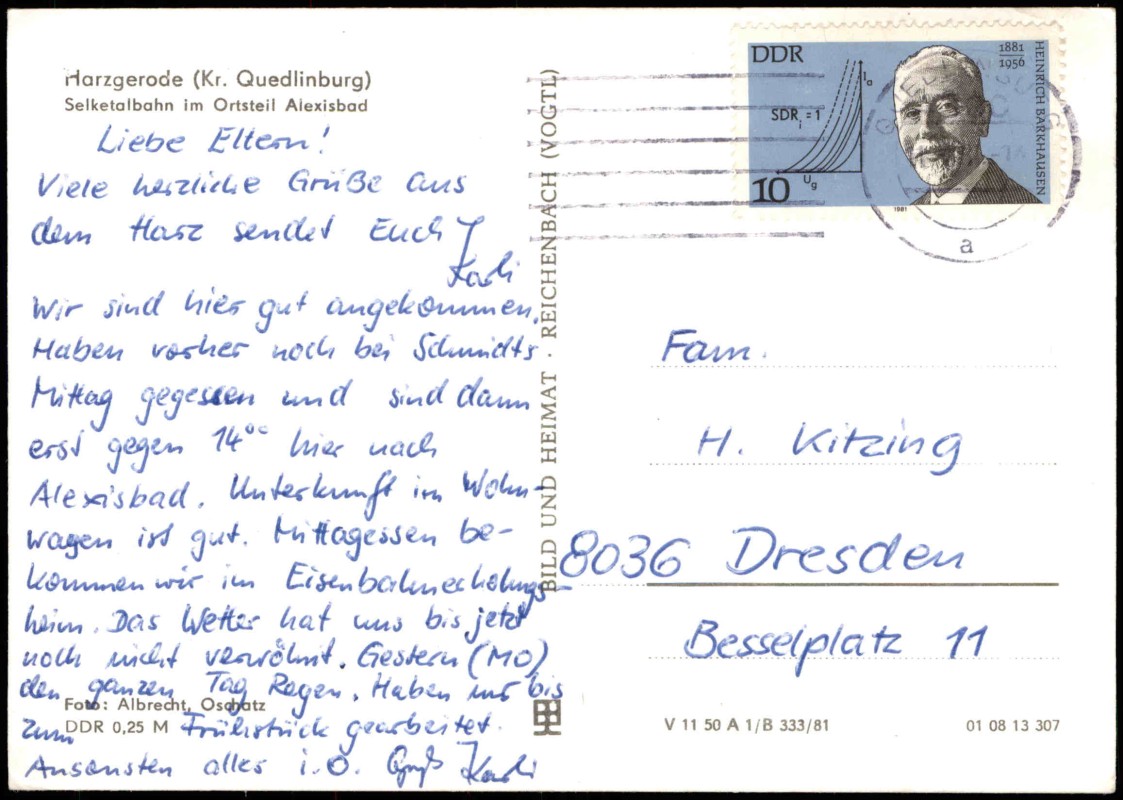 Harzgerode (Kr. Quedlinburg)
Selketalbahn im Ortsteil Alexisbad
Liebe Eltern!
Viele herzliche Grüße aus
dem Harz sendet Euch
Wir sind hier gut angekommen.
Haben vorher noch bei Schmidts
Mittag gegessen und sind dann
erst gegen 14°° hier nach
Alexisbad. Unterkunft im Wohn-
wagen ist gut. Mittagessen be-
kommen wir im Eisenbahnerholungs-
heim. Das Wetter hat uns bis jetzt
noch nicht verwöhnt. Gestern (MO)
den ganzen Tag Regen. Haben nur bis
zum Frühstück gearbeitet.
Ansonsten alles i.O. Gruß
Foto: Albrecht, Oschatz
DDR 0,25 M
BILD UND HEIMAT · REICHENBACH (VOGTL)
DDR
1881
1956
HEINRICH BARKHAUSEN
SDRi = 1
Ia
Ug
10
1981
a
Fam.
H. Kitzing
8036 Dresden
Besselplatz 11
V 11 50 A 1/B 333/81
01 08 13 307